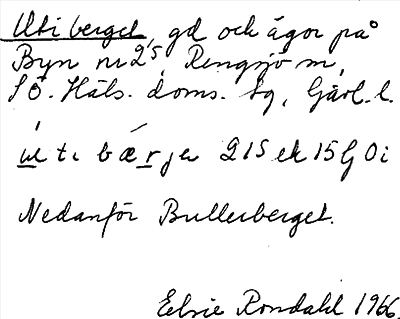 Uti berget, gd och ägor på
Byn nr 2⁵, Rengsjö sn,
SÖ. Häls. doms. sg, Gävl. l.
ut i bærje 215 ek 15 G 0 i
Nedanför Bullerberget.
Elsie Rondahl 1966.